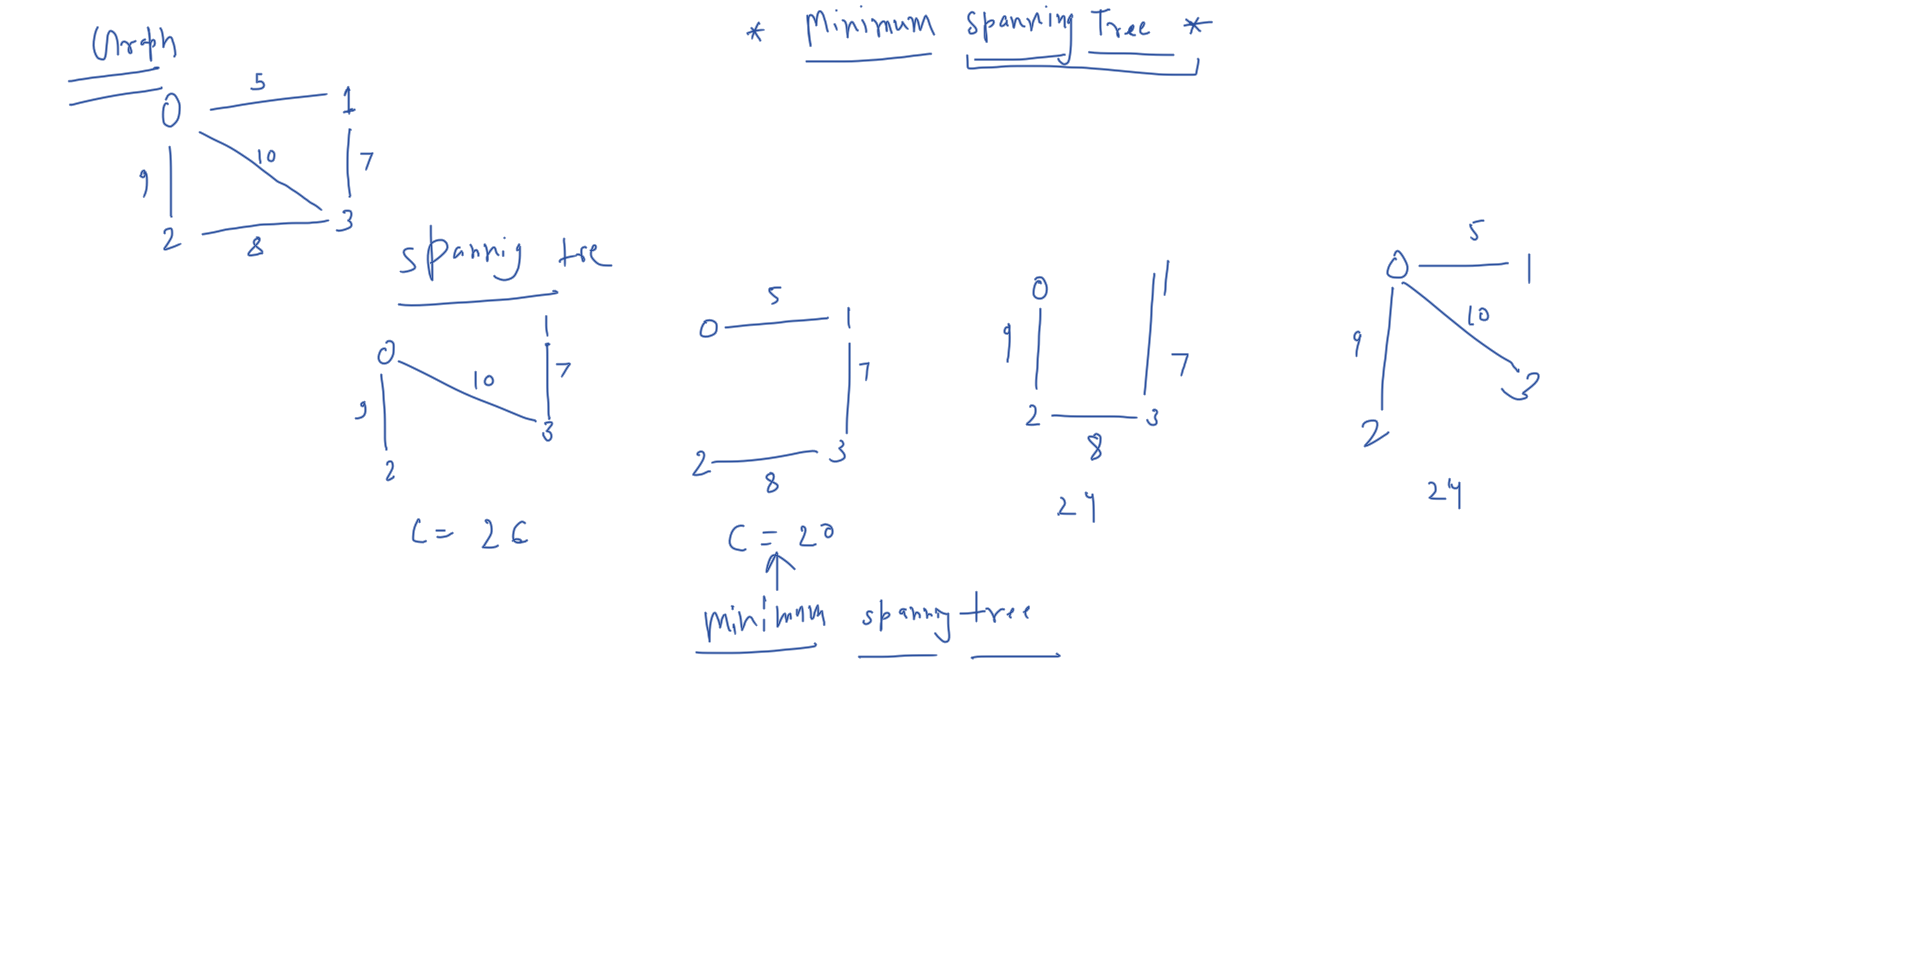 * Minimum Spanning Tree *
Graph
5
0 1
10
9 7
2 3
8
spannig tre
1
0
10 7
9
3
2
C = 26
5
0 1
7
2 3
8
C = 20
minimum spanng tree
0 1
9 7
2 3
8
24
5
0 1
10
9
3
2
24